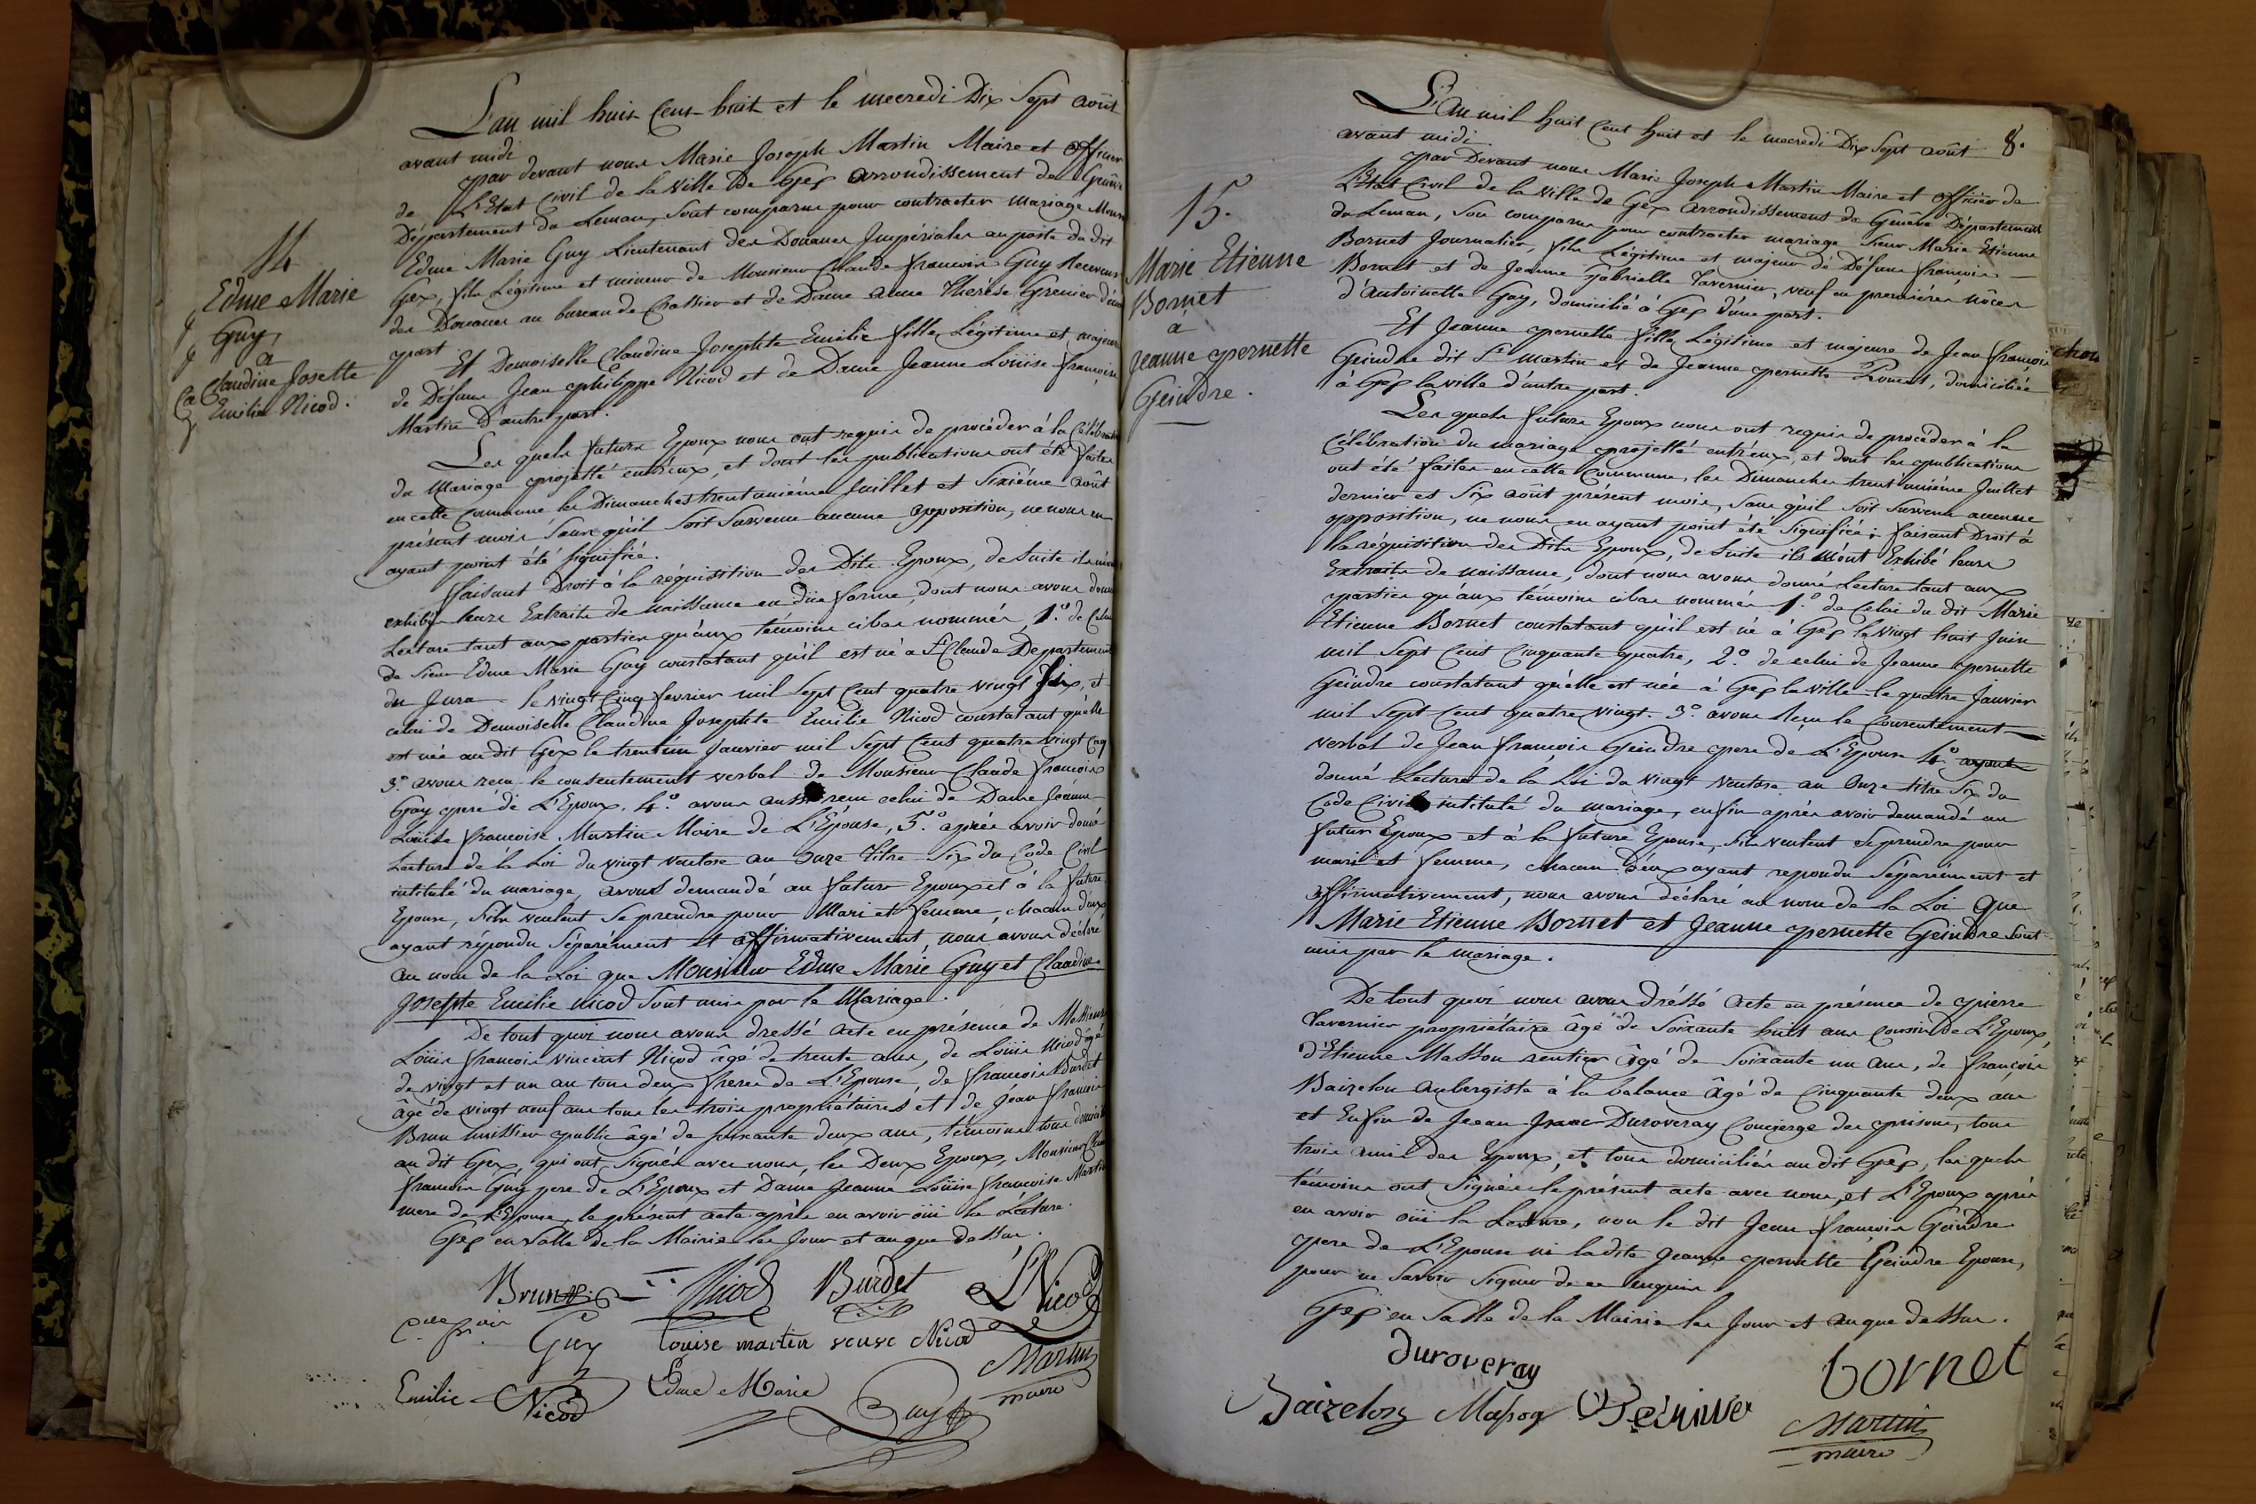 L'an mil huit Cent huit et le mecredi Dix Sept août
avant midi
par devant nous Marie Joseph Martin Maire et officier
de L'Etat Civil de la ville De Gex arrondissement de Genève
Département du Leman, sont comparus pour contracter mariage
Edme Marie Guy Lieutenant des Douanes Impériales au poste du dit
Gex, fils Légitime et mineur de Monsieur Claude francois Guy Receveur
des Douanes au bureau de et de Dame anne Therèse Grenier d'une
part.
Et Demoiselle Claudine Josephte Emilie fille Légitime et majeure
de Défunt Jean philippe Nicod et de Dame Jeanne Loüise françoise
Martin D'autre part.
Les quels futurs Epoux nous ont requis de procéder à la Célébration
du Mariage projetté entr'eux, et dont les publications ont été faites
en cette Commune les Dimanches trent unième Juillet et Sixième août
présent mois sans qu'il soit Survenu aucune opposition, ne nous en
ayant point été signifiée.
faisant Droit à la réquisition des Dits Epoux, de suite ils m'ont
exhibé leurs Extraits de naissance en düe forme, dont nous avons donné
Lecture tant aux parties qu'aux temoins cibas nommés, 1.° de Celui
de sieur Edme Marie Guy constatant qu'il est né à St Claude Departement
du Jura le vingt Cinq fevrier mil Sept Cent quatre vingt six, et
celui de Demoiselle Claudine Josephte Emilie Nicod constatant quelle
est née au dit Gex le trentün Janvier mil Sept Cent quatre vingt Cinq
3.° avons recu le consentement verbal de Monsieur Claude francois
Guy pere de L'Epoux. 4.° avons aussi recu celui de Dame Jeanne
Loüise francoise Martin Maire de L'Epouse, 5.° après avoir donné
Lecture de la Loi du vingt ventose an onze Titre Six du Code Civil
intitulé du mariage, avons demandé au futur Epoux et à la future
Epouse, S'ils veulent Se prendre pour Mari et femme, chacun d'eux
ayant répondu Séparément et affirmativement, nous avons déclaré
au nom de la Loi que Monsieur Edme Marie Guy et Claudine
Josephte Emilie Nicod sont unis par le Mariage.
De tout quoi nous avons dressé acte en présence de Messieurs
Loüis francois vincent Nicod âgé de trente ans, de Loüis Nicod âgé
de vingt et un an tous deux freres de L'Epouse, de francois Burdet
âgé de vingt neuf ans tous les trois propriétaires et de Jean francois
Brun huissier public âgé de soixante deux ans, témoins tous domiciliés
au dit Gex, qui ont Signés avec nous, les Deux Epoux, Monsieur
francois Guy pere de L'Epoux et Dame Jeanne Loüise francoise Martin
mere de L'Epouse, le présent acte après en avoir oüi la Lecture.
Gex en Salle de la Mairie les Jour et an que dessus.
Brun Nicod Burdet L Nicod
Guy Louise martin veuve Nicod
Martin
maire
Emilie Nicod Edme Marie Guy
14
Edme Marie
Guy
a
Claudine Josette
Emilie Nicod.
8.
L'an mil huit Cent huit et le mecredi Dix Sept août
avant midi
par Devant nous Marie Joseph Martin Maire et officier de
L'Etat Civil de la ville de Gex arrondissement de Genève Département
du Leman, sont comparus pour contracter mariage Sieur Marie Etienne
Bornet Journalier, fils Légitime et majeur de Défunt francois
Bornet et de Jeanne Gabrielle Tavernier, veuf en premières nôces
d'antoinette Gay, domicilié à Gex d'une part.
Et Jeanne pernette fille Légitime et majeure de Jean françois
Geindre dit St martin et de Jeanne pernette domiciliée
à Gex la ville d'autre part.
Les quels futurs Epoux nous ont requis de procéder à la
Célébration du mariage projetté entr'eux, et dont les publications
ont été faites en cette Commune, les Dimanches trent unième Juillet
dernier et Six août présent mois, sans qu'il soit survenu aucune
opposition, ne nous en ayant point été signifiée; faisant Droit à
la réquisition des Dits Epoux, de suite ils m'ont Exhibé leurs
Extraits de naissance, dont nous avons donné Lecture tant aux
parties qu'aux temoins cibas nommés 1.° de Celui du dit Marie
Etienne Bornet constatant qu'il est né à Gex le vingt huit Juin
mil Sept Cent Cinquante quatre, 2.° de celui de Jeanne pernette
Geindre constatant qu'elle est née à Gex la ville le quatre Janvier
mil Sept Cent quatre vingt. 3.° avons Reçu le Consentement
verbal de Jean francois Geindre pere de L'Epouse 4.° ayons
donné Lecture de la Loi du vingt ventose an Onze titre Six du
Code Civil intitulé du mariage, enfin après avoir demandé au
futur Epoux et à la future Epouse, S'ils veulent se prendre pour
mari et femme, chacun d'eux ayant repondu Séparément et
affirmativement, nous avons déclaré au nom de la Loi que
Marie Etienne Bornet et Jeanne pernette Geindre sont
unis par le mariage.
De tout quoi nous avons dréssé acte en présence de pierre
Tavernier propriétaire âgé de Soixante huit ans Cousin de L'Epoux,
d'Etienne Masson rentier âgé de soixante un ans, de françois
Baizelon aubergiste à la balance âgé de Cinquante deux ans
et Enfin de Jean Isaac Duroveray Concierge des prisons, tous
trois amis des Epoux, et tous domiciliés au dit Gex, les quels
témoins ont Signés le présent acte avec nous, et L'Epoux après
en avoir oüi la Lecture, non le dit Jean francois Geindre
pere de L'Epouse ni ladite Jeanne pernette Geindre Epouse,
pour ne Savoir Signer de ce enquis
Gex en Salle de la Mairie les Jour et an que dessus.
Duroveray bornet
Baizelon Masson
Martin
maire
15.
Marie Etienne
Bornet
a
Jeanne pernette
Geindre.